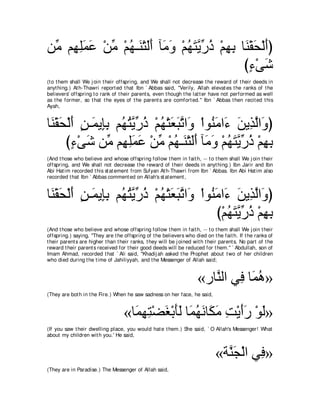 أَلْحَقْنَا بِهِمْ ذُرِّيَّتَهُمْ وَمَآ أَلَتْنَـهُمْ مِّنْ عَمَلِهِم مِّن
شَىْءٍ)
(to them shall We join their offspring, and We shall not decrease the reward of their deeds in
anything.) Ath-Thawri reported that Ibn `Abbas said, "Verily, Allah elevates the ranks of the
believers' offspring to rank of their parents, even though the latter have not performed as well
as the former, so that the eyes of the parents are comforted.'' Ibn `Abbas then recited this
Ayah,
(وَالَّذِينَ ءَامَنُواْ وَاتَّبَعَتْهُمْ ذُرِّيَّتُهُم بِإِيمَـنٍ أَلْحَقْنَا
بِهِمْ ذُرِّيَّتَهُمْ وَمَآ أَلَتْنَـهُمْ مِّنْ عَمَلِهِم مِّن شَىْءٍ)
(And those who believe and whose offspring follow them in faith, -- to them shall We join their
offspring, and We shall not decrease the reward of their deeds in anything.) Ibn Jarir and Ibn
Abi Hatim recorded this statement from Sufyan Ath-Thawri from Ibn `Abbas. Ibn Abi Hatim also
recorded that Ibn `Abbas commented on Allah's statement,
(وَالَّذِينَ ءَامَنُواْ وَاتَّبَعَتْهُمْ ذُرِّيَّتُهُم بِإِيمَـنٍ أَلْحَقْنَا
بِهِمْ ذُرِّيَّتَهُمْ)
(And those who believe and whose offspring follow them in faith, -- to them shall We join their
offspring,) saying, "They are the offspring of the believers who died on the faith. If the ranks of
their parents are higher than their ranks, they will be joined with their parents. No part of the
reward their parents received for their good deeds will be reduced for them.'' `Abdullah, son of
Imam Ahmad, recorded that `Ali said, "Khadijah asked the Prophet about two of her children
who died during the time of Jahiliyyah, and the Messenger of Allah said,
«هُمَا فِي النَّار»
(They are both in the Fire.) When he saw sadness on her face, he said,
«لَوْ رَأَيْتِ مَكَانَهُمَا لَأَبْغَضْتِهِمَا»
(If you saw their dwelling place, you would hate them.) She said, `O Allah's Messenger! What
about my children with you.' He said,
«فِي الْجَنَّة»
(They are in Paradise.) The Messenger of Allah said,